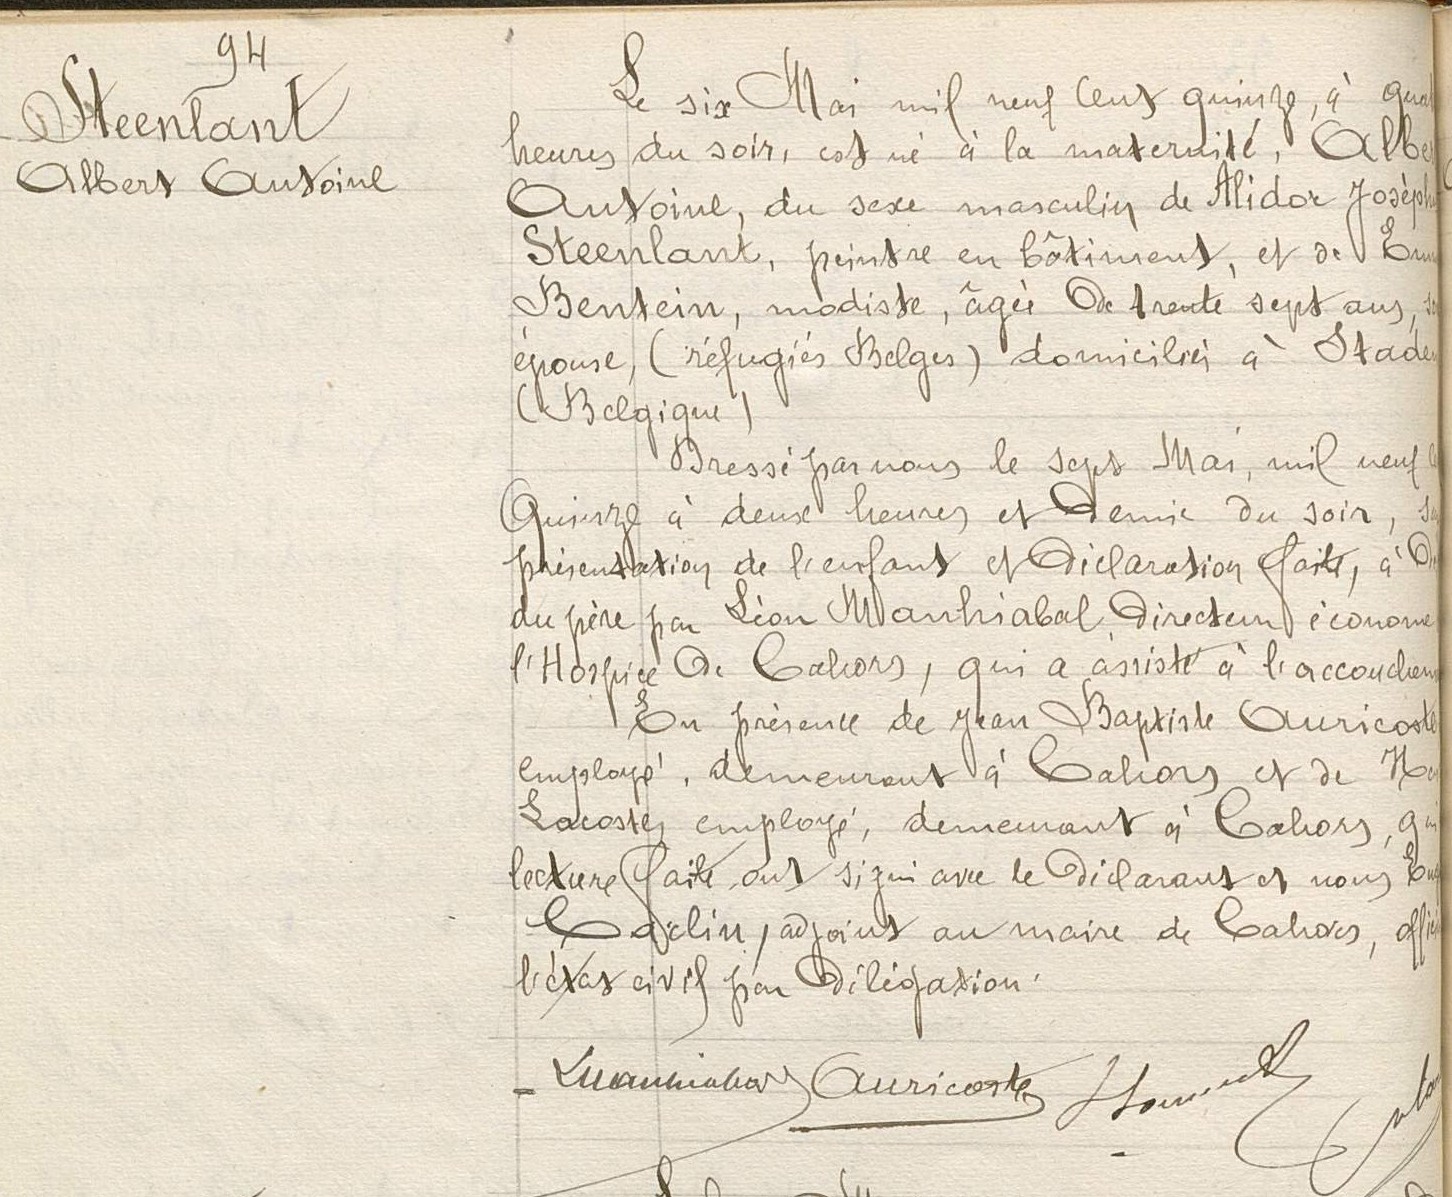 94
Steenlant
Albert Antoine
Le six Mai mil neuf Cent quinze, à qua
heures du soir, est né à la maternité, Albe
Antoine, du sexe masculin de Alidor Joséph
Steenlant, peintre en bâtiment, et de Em
Bentein, modiste, âgée De trente sept ans, s
épouse, (réfugiés Belges) domiciliés à Stade
(Belgique)
Dressé par nous le sept Mai, mil neuf c
Quinze à deux heures et Demie Du soir, su
présentation de l'enfant et Déclaration faite, à D
du père par Léon Manhiabal Directeur économe
l'Hospice De Cahors, qui a assisté à l'accouchem
En présence de Jean Baptiste Auricoste
employé, demeurant à Cahors et de
Lacoste, employé, demeurant à Cahors, qui
lecture faite ont signé avec le Déclarant et nous Eug
adjoint au maire de Cahors, offici
l'état civil par Délégation.
Lmanhiabal Auricoste